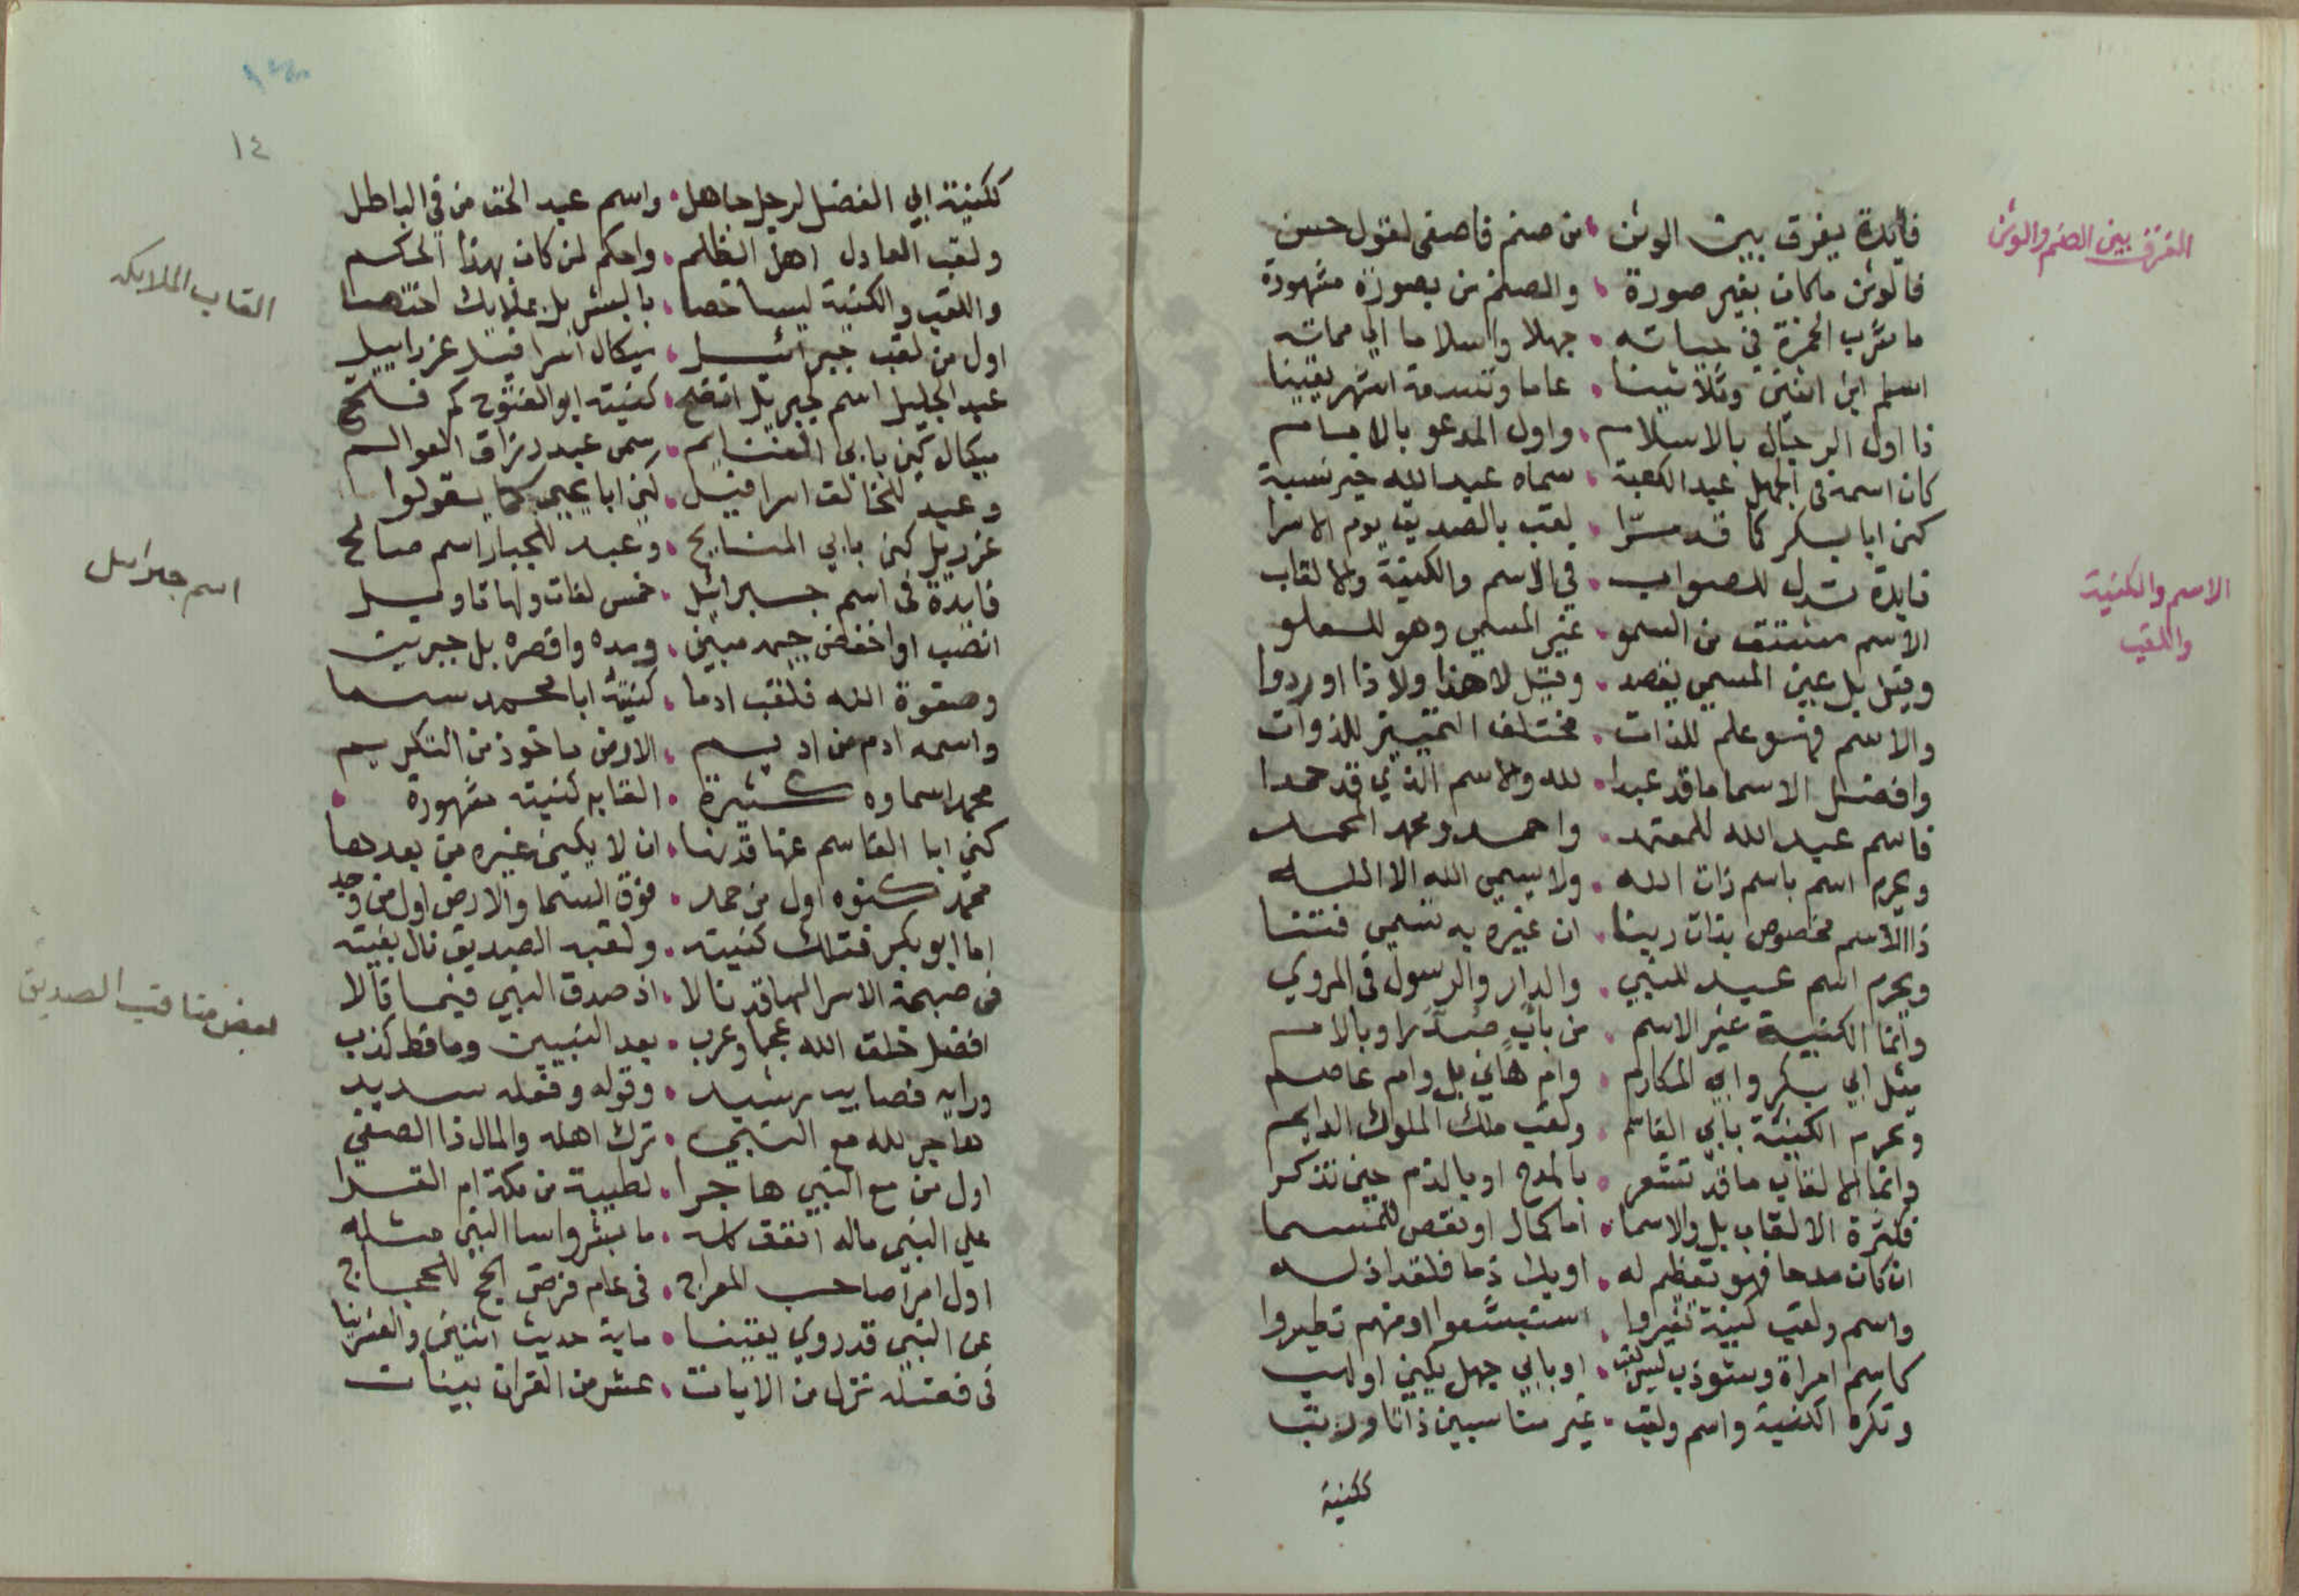 الفرق بين الصنم والوثن
فايدة يفرق بين الوثن • من صنم فاصغى لقول حسن
فالوثن ماكان بغير صورة • والصنم من بصورة مشهورة
ما شرب الخمرة في حياته • جهلا واسلاما الي مماته
اسلم ابن اثنين وثلاثينا • عاما وتسعة اشهر يقينا
ذا اول الرجال بالاسلام • واول المدعو بالامام
كان اسمه في الجهل عبد الكعبة • سماه عبد الله خير نسبة
كنى ابا بكر كما قد سرا • لقب بالصديق يوم الاسرا
الاسم والكنية
واللقب
فايدة تدل للصواب • في الاسم والكنية والالقاب
الاسم مشتق من السمو • غير المسمي وهو للعلو
وقيل بل عين المسمي يقصد • وقيل لا هذا ولا ذا اوردوا
والاسم فهو علم للذات • مختلف التمييز للذوات
وافضل الاسما ما قد عبدا • لله والاسم الذي قد حمدا
فاسم عبد الله للمعتمد • واحمد ومحمد المحمد
ويحرم اسم باسم ذات الله • ولا يسمي الله الا الله
ذا الاسم مخصوص بذات ربنا • ان غيره به تسمي فتنا
ويحرم اسم عبد للنبي • والدار والرسول في المروي
وانما الكنية غير الاسم • من باب صدرا وبالام
مثل ابي بكر وابي المكارم • وام هاني بل وام عاصم
وتحرم الكنية بابي القاسم • ولقب ملك الملوك الدايم
وانما الالقاب ما قد تشعر • بالمدح او بالذم حين تذكر
فكثرة الالقاب بل والاسما • اما كمال او نقص للمسما
ان كان مدحا فهو تعظيم له • او يك ذما فلقد اذله
واسم ولقب كنية تغيروا • استبشعوا او منهم تطيروا
كاسم امراة وشوذب لقب • او بابي جهل يكني او لهب
وتكره الكنية واسم ولقب • غير مناسبين ذاتا ورتبا
ككنية
١٤
ككنية ابي الفضل لرجل جاهل • واسم عبد الحق من في الباطل
ولقب العادل اهل الظلم • واحكم لمن كان بهذا الحكم
القاب الملايكه
واللقب والكنية ليسا خصا • بالبشر بل بملايك اختصا
اول من لقب جبرائيل • ميكال اسرافيل عزراييل
عبد الجليل اسم لجبريل اتضح • كنيته ابو الفتوح كم فتح
ميكال كني بابي الغنايم • سمى عبد رزاق العوالم
وعبد للخالق اسرافيل • كني ابا يحيي كما يقولوا
عزريل كني بابي المنايح • وعبد للجبار اسم صالح
اسم جبرائيل
فايدة في اسم جبرائيل • خمس لغات ولها تاويل
انصب او اخفض جيمه مبين • ومده واقصره بل جبرين
وصفوة الله فلقب ادما • كنيته ابا محمد سما
واسمه ادم من اديم • الارض ماخوذ من التكريم
محمد اسماوه كثيرة • القابه كنيته مشهورة •
كني ابا القاسم عنها قد نها • ان لا يكني غيره من بعدها
محمد كنوه اول من حمد • فوق السما والارض اول من وجد
اما ابو بكر فتلك كنيته • ولقبه الصديق نال بغيته
بعض مناقب الصديق
في صبحة الاسرا لها قد نالا • اذ صدق النبي فيما قالا
افضل خلق الله عجما وعرب • بعد النبيين وما قط كذب
ورايه فصايب رشيد • وقوله وفعله سديد
هاجر لله مع النبي • ترك اهله والمال ذا الصفي
اول من مع النبي هاجرا • لطيبة من مكة ام القرا
علي النبي ماله انفق كله • ما بشر واسا النبي مثله
اول امرا صاحب المعراج • في عام فرض الحج للحجاج
عن النبي قد روي يقينا • ماية حديث اثنين والعشرينا
في فضله نزل من الايات • عشر من القران بينات